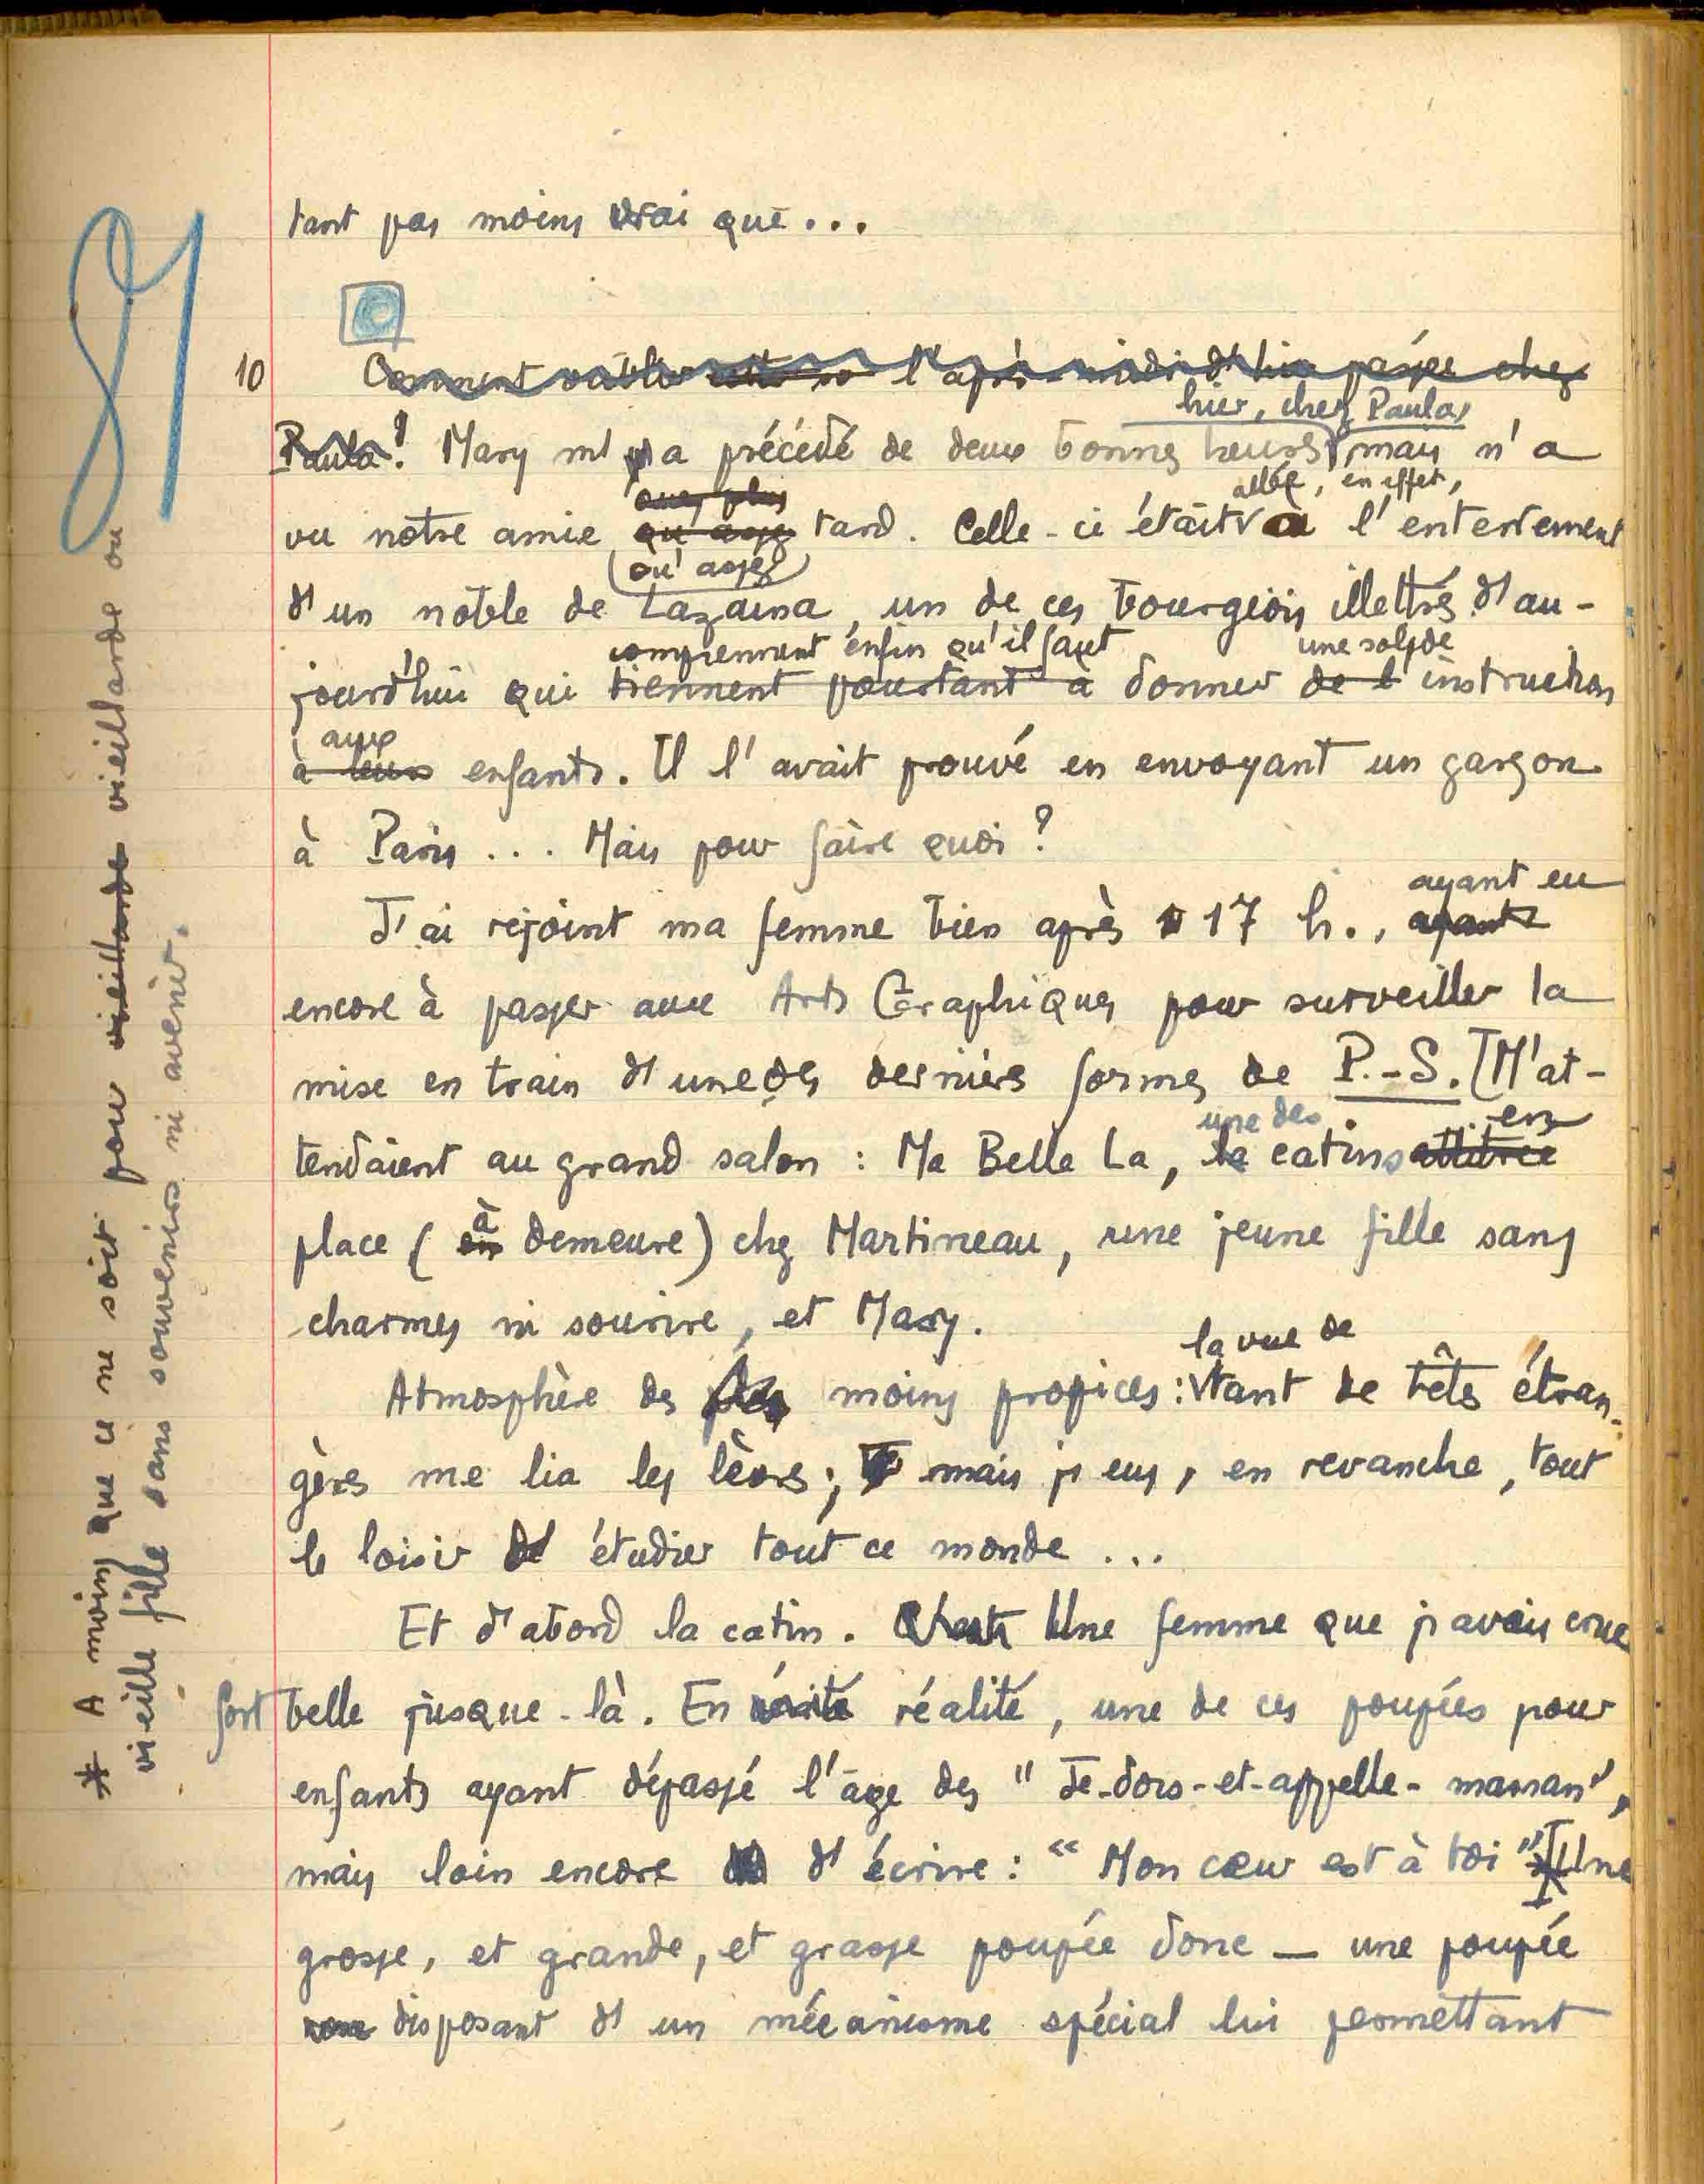 tant pas moins vrai que...
10 Comment oublier l'après-midi d'hier passée chez
hier, chez Paula,
Paula? Mary m'y a précédé de deux bonnes heures, mais n'a
allée, en effet,
vu notre amie qu'assez tard. Celle-ci était à l'enterrement
qu'assez
d'un notable de Lazaina, un de ces bourgeois illettrés d'au-
comprennent enfin qu'il faut une solide
jourd'hui qui tiennent pourtant à donner de l'instruction
aux
à leurs enfants. Il l'avait prouvé en envoyant un garçon
à Paris... Mais pour faire quoi?
J'ai rejoint ma femme bien après 17 h., ayant
ayant eu
encore à passer aux Arts Graphiques pour surveiller la
mise en train d'une des dernières formes de P.-S. [M'at-
une des en
tendaient au grand salon : Ma Belle La, la catins attitrée
à
place (en demeure) chez Martineau, une jeune fille sans
charmes ni sourire, et Mary.
la vue de
Atmosphère des moins propices : tant de têtes étran-
gères me lia les lèvres ; mais j'eus, en revanche, tout
le loisir d'étudier tout ce monde...
Et d'abord la catin. Une femme que j'avais crue
fort belle jusque-là. En vérité réalité, une de ces poupées pour
enfants ayant dépassé l'âge des "Je-dors-et-appelle-maman",
mais loin encore d'écrire : "Mon cœur est à toi" * [Une
grosse, et grande, et grasse poupée donc — une poupée
disposant d'un mécanisme spécial lui permettant
* A moins que ce ne soit pour vieillarde vieillarde ou
vieille fille sans souvenirs ni avenir.